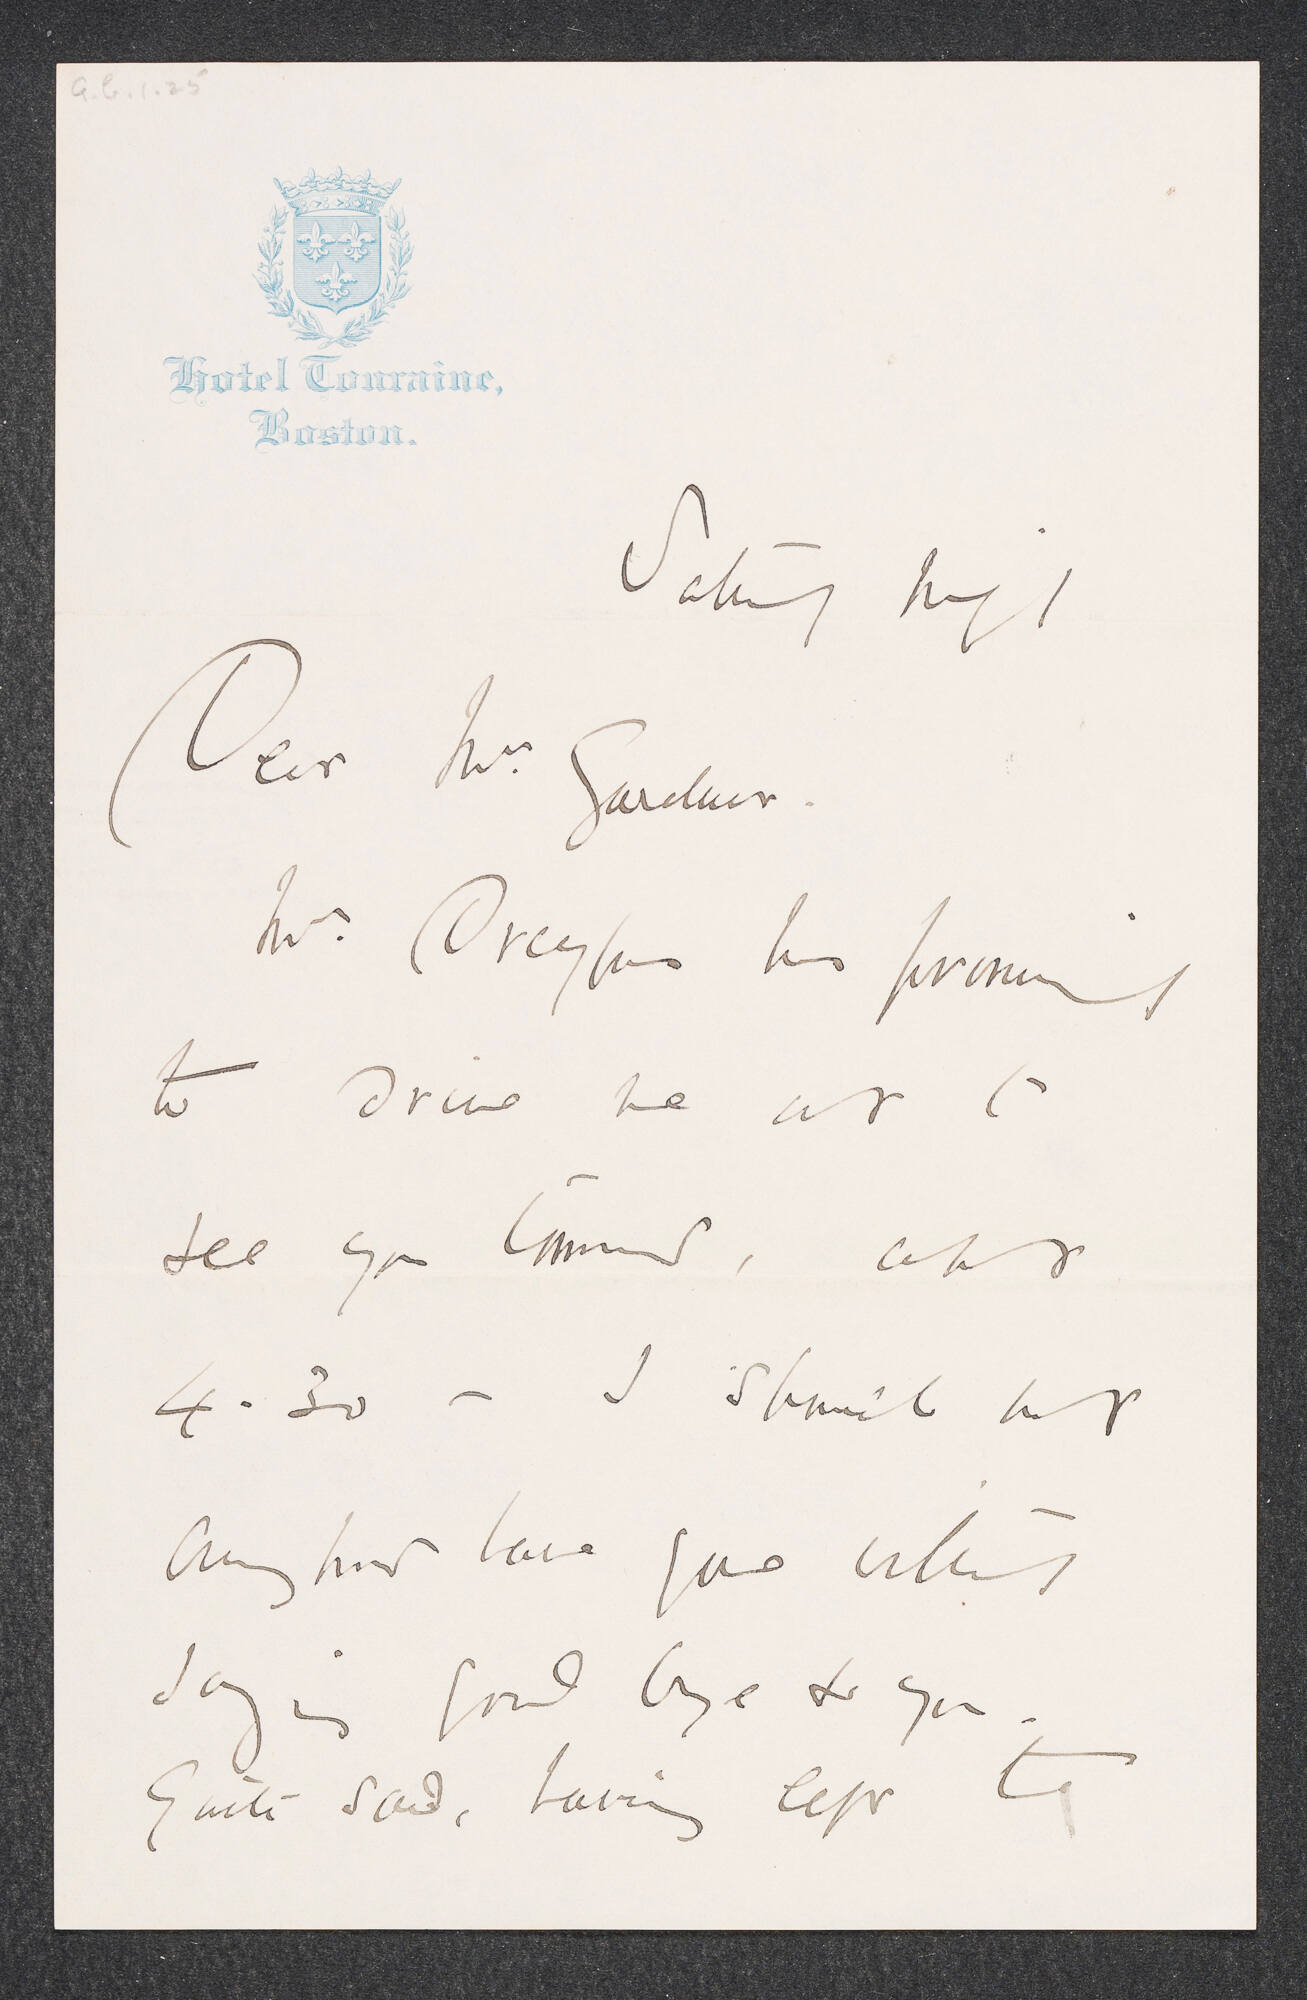 a.c.1.25
Hotel Touraine,
Boston.
Saturday night
Dear Mrs. Gardner.
Mrs. Dreyfus has promised
to drive me out to
see you tomorrow, about
4.30 – I should not
anyhow have gone without
saying good bye to you.
Quite sad, having left